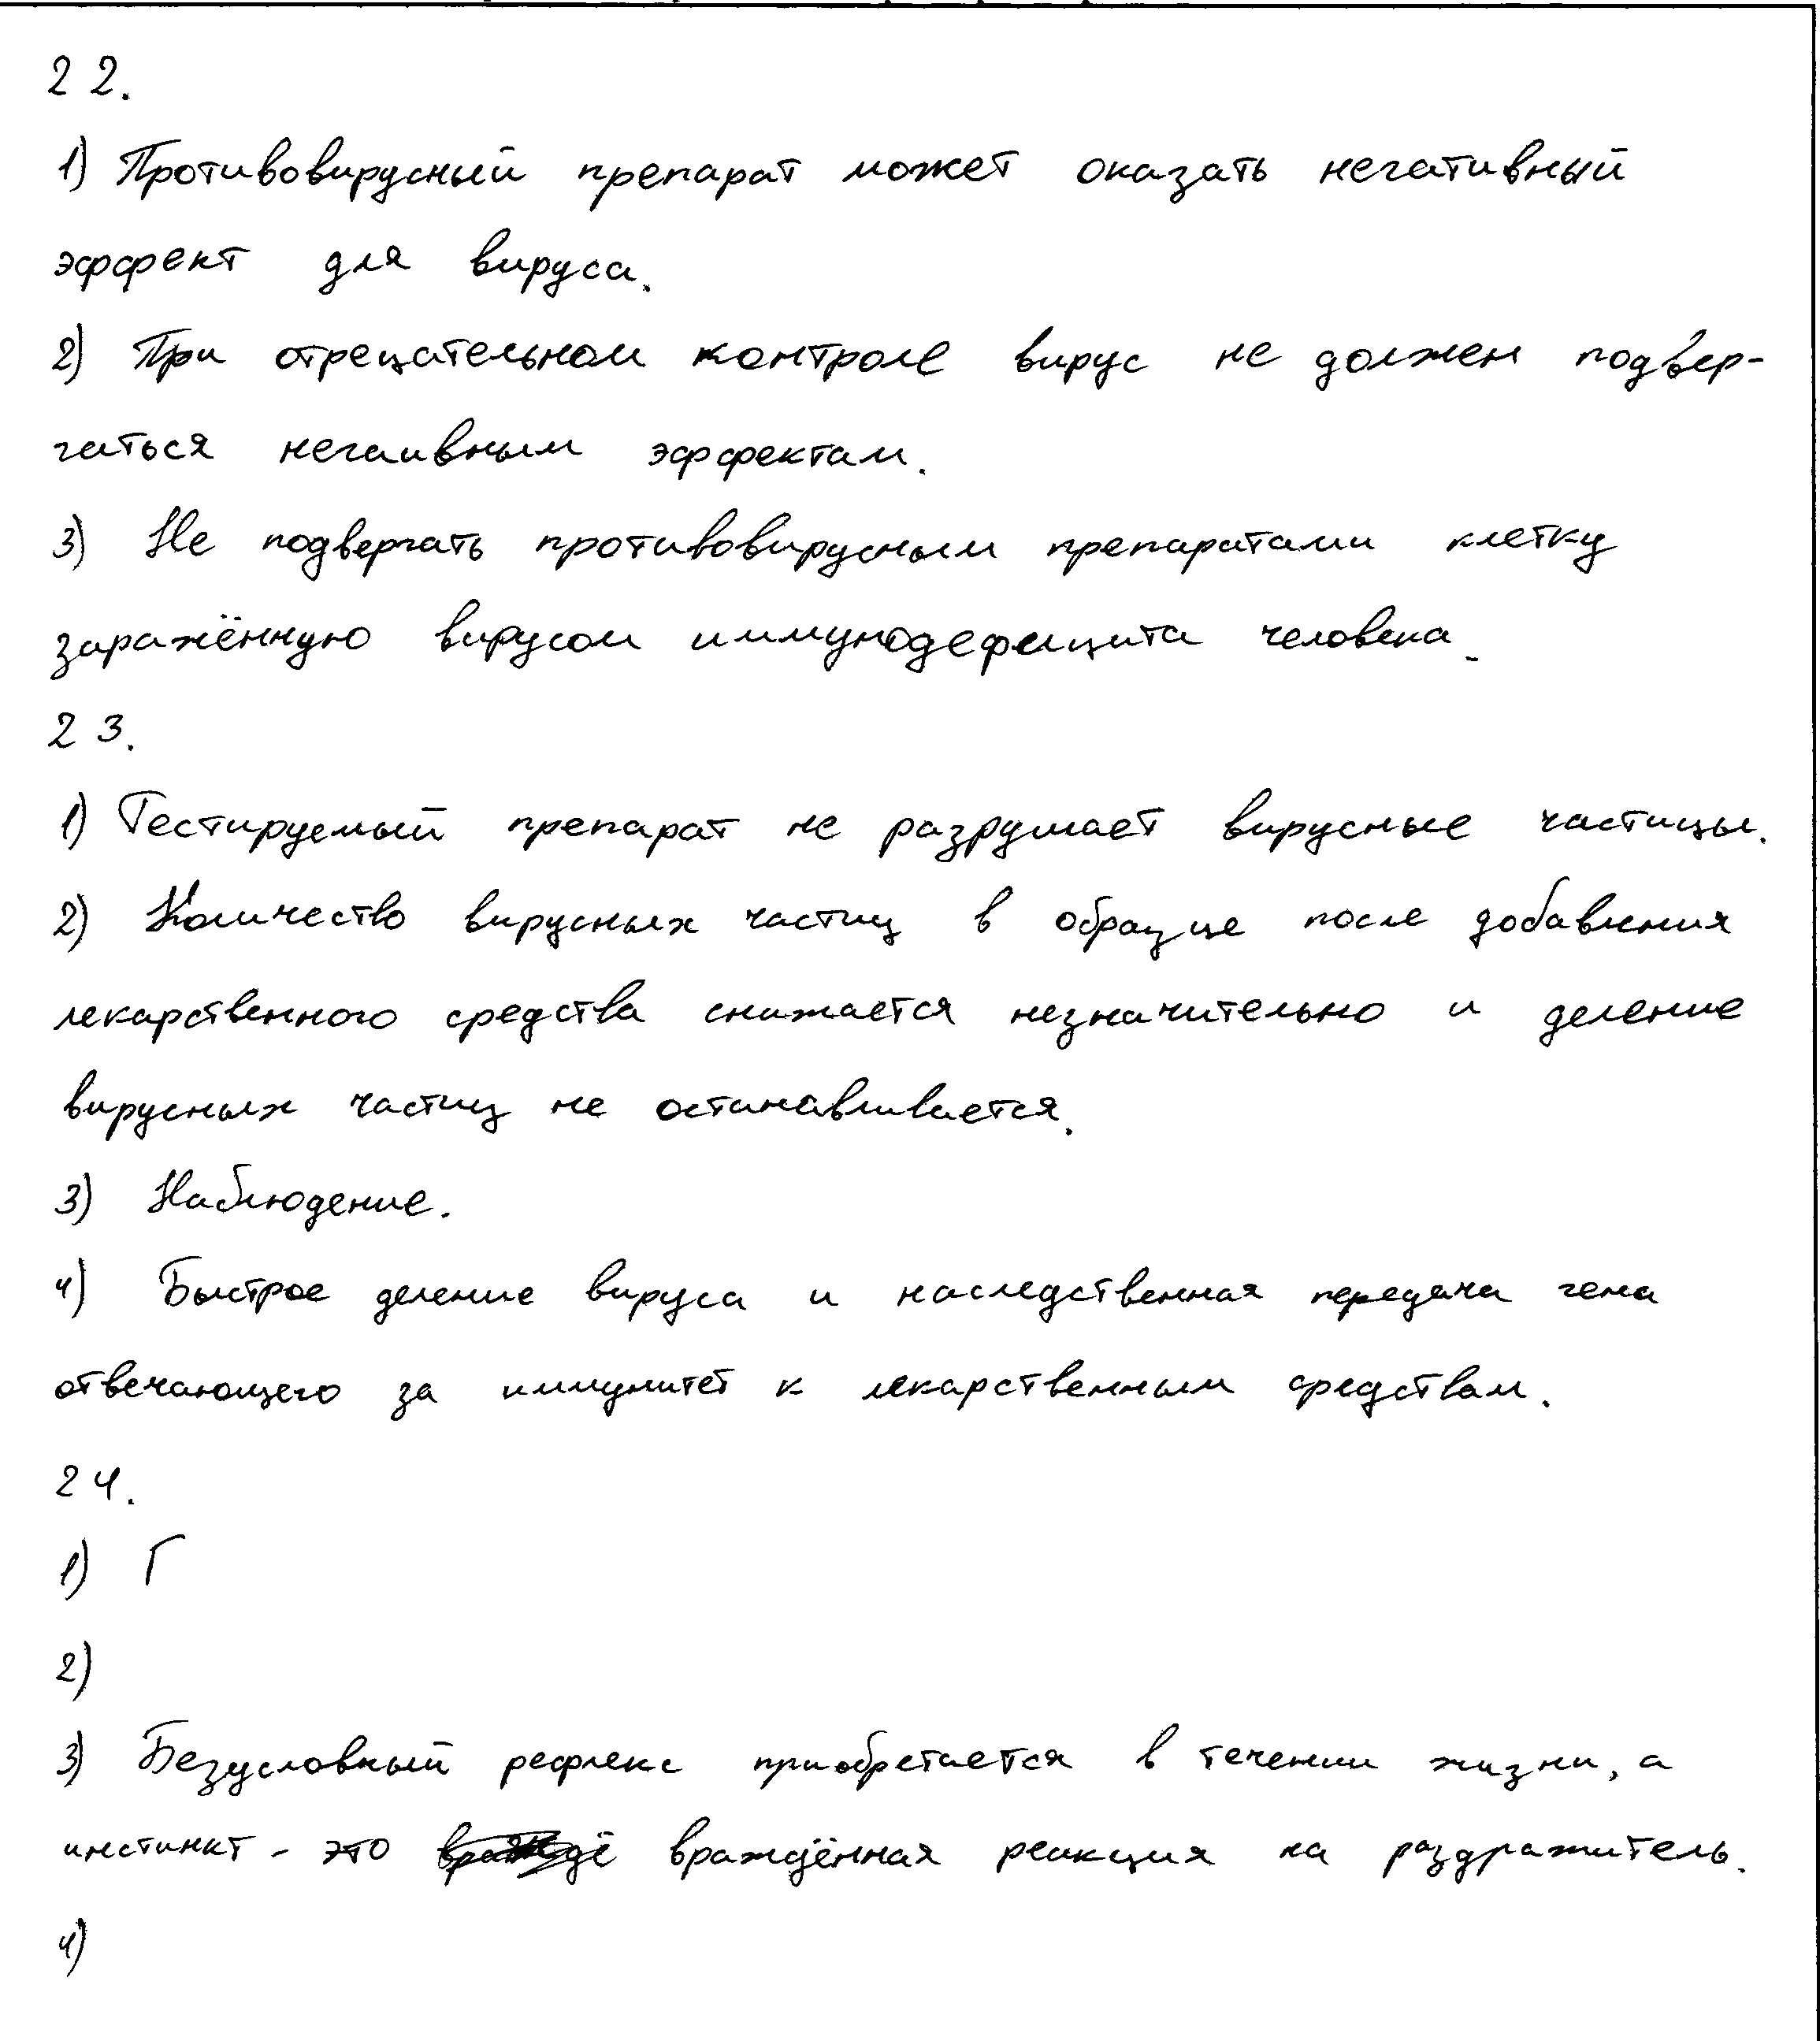 22.
1) Противовирусный препарат может оказать негативный
эффект для вируса.
2) При отрецательном контроле вирус не должен подвер-
гаться негаивным эффектам.
3) Не подвергать противовирусным препаратами клетку
заражённую вирусом иммунодефицита человека.
23.
1) Тестируемый препарат не разрушает вирусные частицы.
2) Количество вирусных частиц в образце после добавления
лекарственного средства снижается незначительно и деление
вирусных частиц не останавливается.
3) Наблюдение.
4) Быстрое деление вируса и наследственная передача гена
отвечающего за иммунитет к лекарственным средствам.
24.
1) Г
2)
3) Безусловный рефлекс приобретается в течении жизни, а
инстинкт - это враждённая реакция на раздражитель.
4)